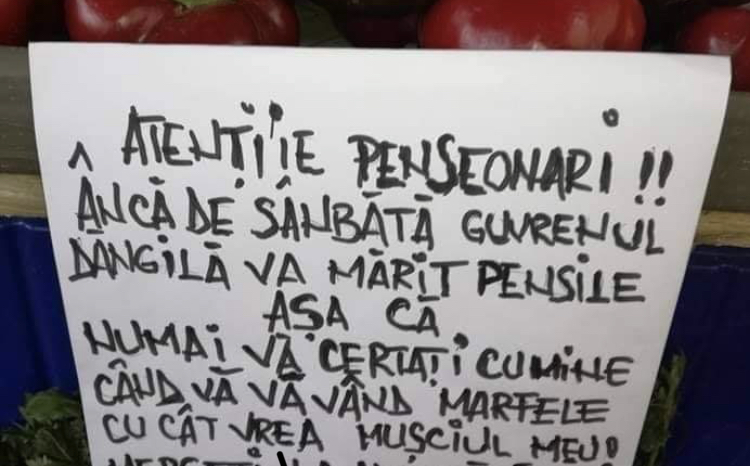 ATENȚIIE PENSEONARI !!
ÂNCĂ DE SÂNBĂTĂ GUVRENUL
DĂNGILĂ VA MĂRIT PENSILE
ASA CĂ
NUMAI VĂ CERTAȚI CUMINE
CÂND VĂ VĂVÂND MARFELE
CU CÂT VREA MUȘCIUL MEU